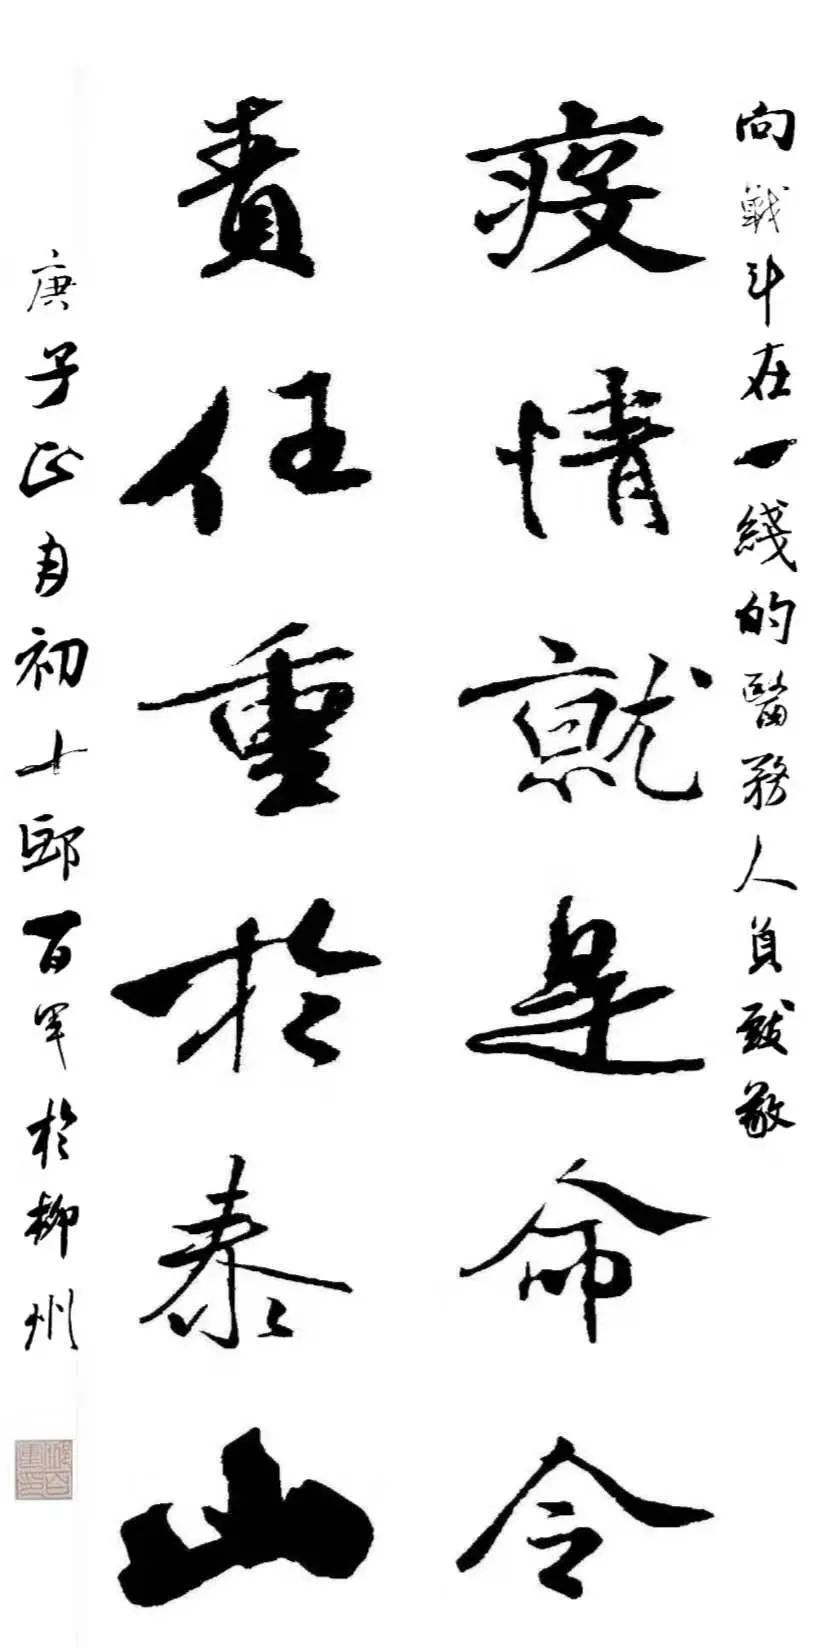 向戰斗在一綫的醫務人員致敬
疫情就是命令
責任重於泰山
庚子正月初十邱百军於柳州